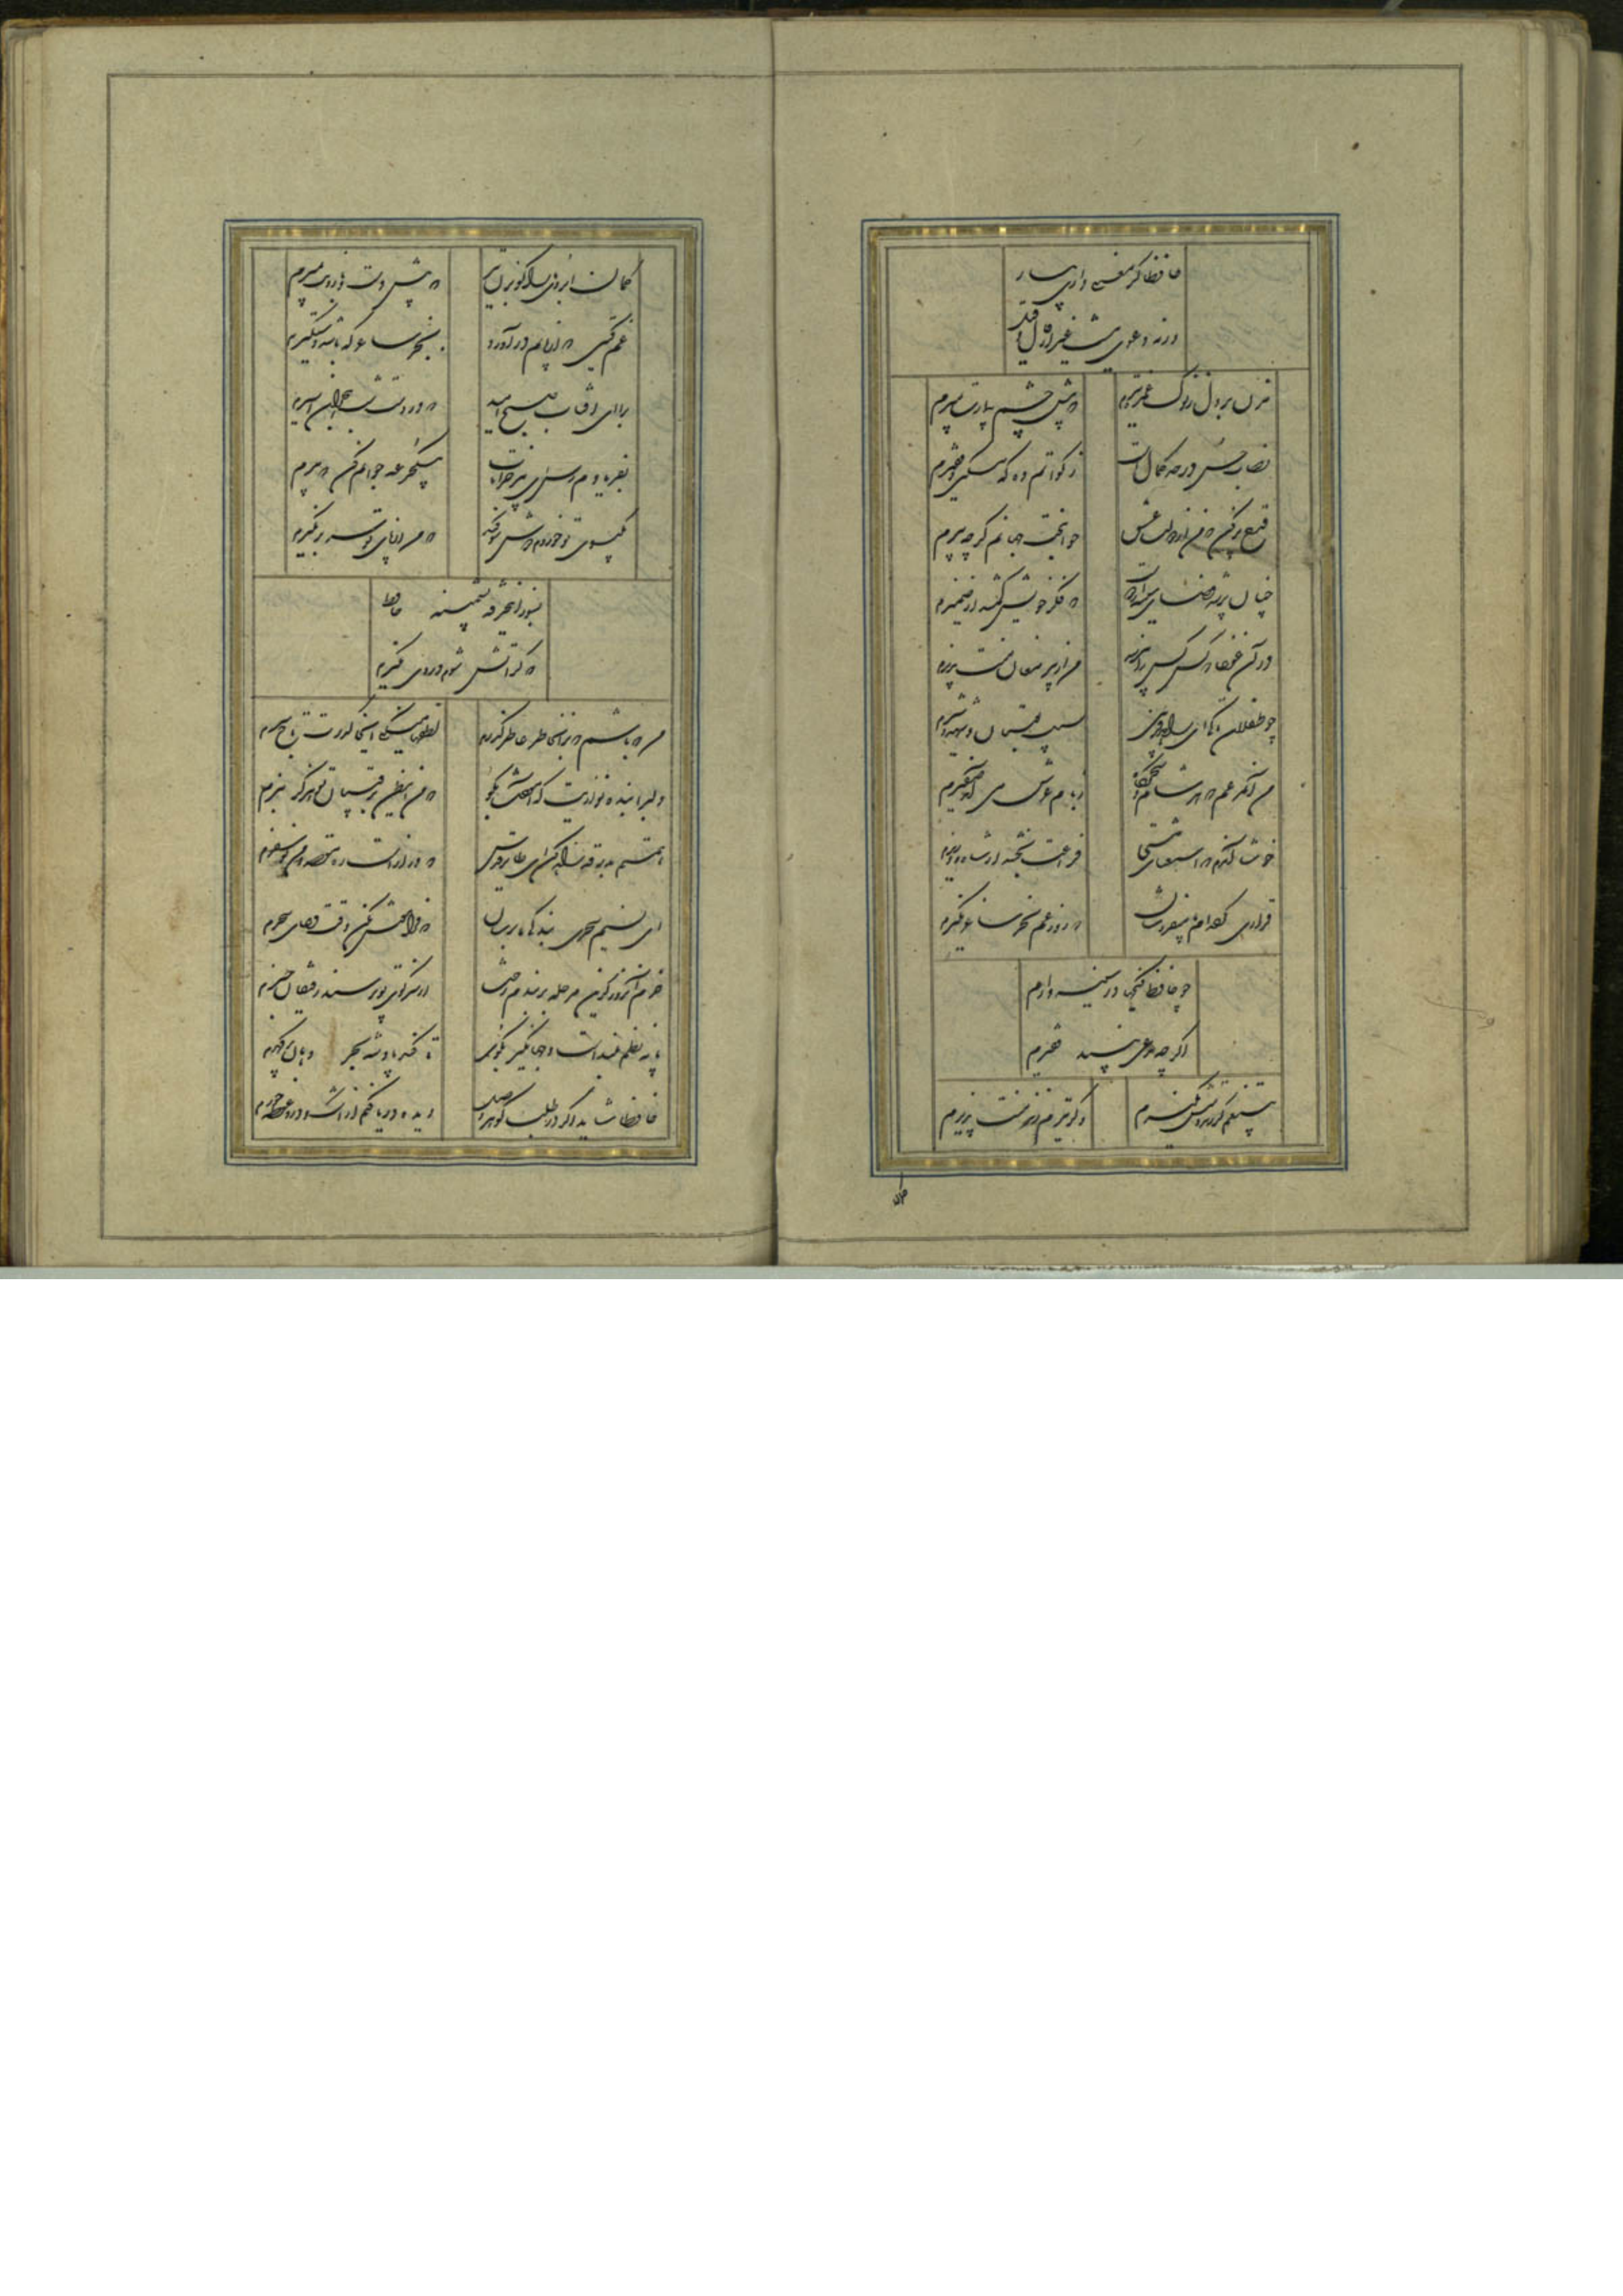 حافظ گر معنی داری بیار
ورنه دعوی نیست غیر از قال و قیل
مزن بر دل ز نوک غمزه تیرم که پیش چشم بیمارت بمیرم
نصاب حسن در حد کمال است زکواتم ده که مسکین و فقیرم
قدح پر کن که من از دولت عشق جوانبخت جهانم گرچه پیرم
چنان پر شد فضای سینه از دوست که فکر خویش گم شد از ضمیرم
در آن غوغا که کس کس را نپرسد من از پیر مغان منت پذیرم
چو طفلان تا کی ای زاهد فریبی بسیب بوستان و شهد و شیرم
من آن مرغم که هر شام و سحرگاه ز بام عرش می آید صفیرم
خوشا آندم که استغنای مستی فراغت بخشد از شاه و وزیرم
قراری کرده‌ام با میفروشان که روز غم بجز ساغر نگیرم
چو حافظ گنج او در سینه دارم
اگرچه مدعی بیند حقیرم
به تیغم گر کشد دستش نگیرم وگر تیرم زند منت پذیرم
کمان ابروی ما را گو بزن تیر که پیش دست و بازویت بمیرم
غم گیتی گر از پایم درآورد بجز ساغر که باشد دستگیرم
برآی ای آفتاب صبح امید که در دست شب هجران اسیرم
بفریادم رس ای پیر خرابات بیک جرعه جوانم کن که پیرم
بگیسوی تو خوردم دوش سوگند که من از پای تو سر بر نگیرم
بسوز این خرقه پشمینه حافظ
که گر آتش شوم در وی نگیرم
من که باشم که بر آن خاطر عاطر گذرم لطفها میکنی ای خاک درت تاج سرم
دلبرا بنده نوازیت که آموخت بگو که من این ظن برقیبان تو هرگز نبرم
همتم بدرقه راه کن ای طایر قدس که دراز است ره مقصد و من نوسفرم
ای نسیم سحری بندگی ما برسان که فراموش مکن وقت دعای سحرم
خرم آن روز کزین مرحله بربندم رخت وز سر کوی تو پرسند رفیقان خبرم
پایه نظم بلند است و جهانگیر بگوی تا کند پادشه بحر دهان پر گهرم
حافظا شاید اگر در طلب گوهر وصل دیده دریا کنم از اشک و درو غوطه خورم